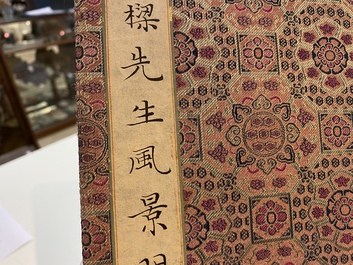 樑先生風景